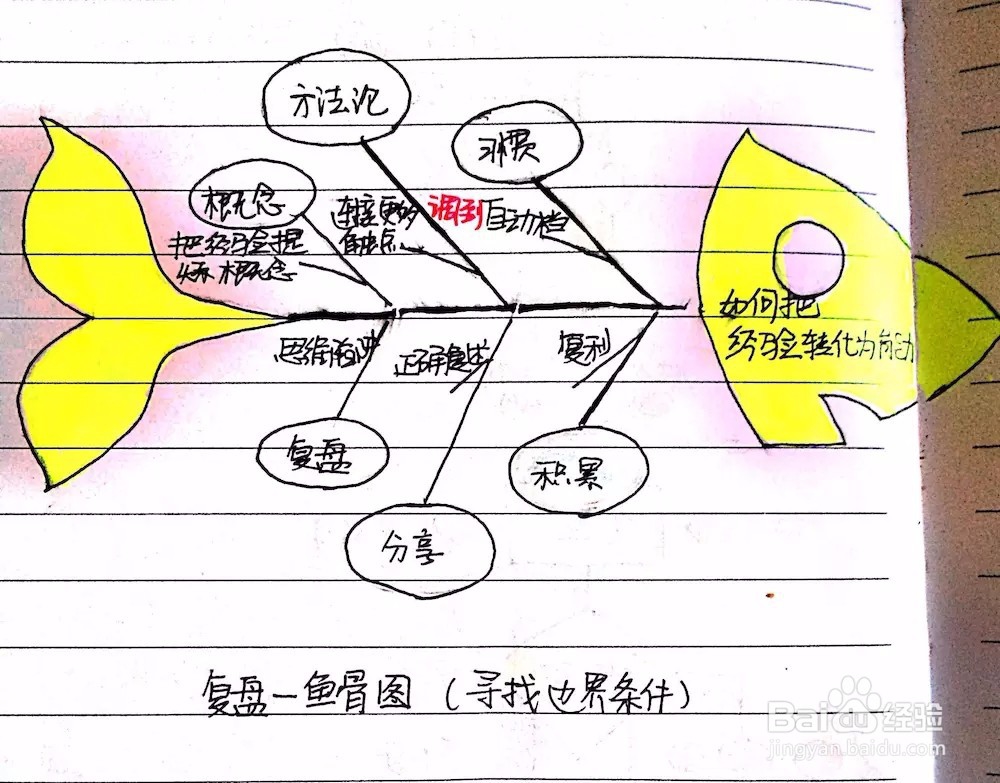 方法论
习惯
概念
连接更多
触点
调到自动档
把经验提
炼概念
如何把
经验转化为行动
思维
正确复述
复利
复盘
积累
分享
复盘—鱼骨图（寻找边界条件）
Baidu经验
jingyan.baidu.com